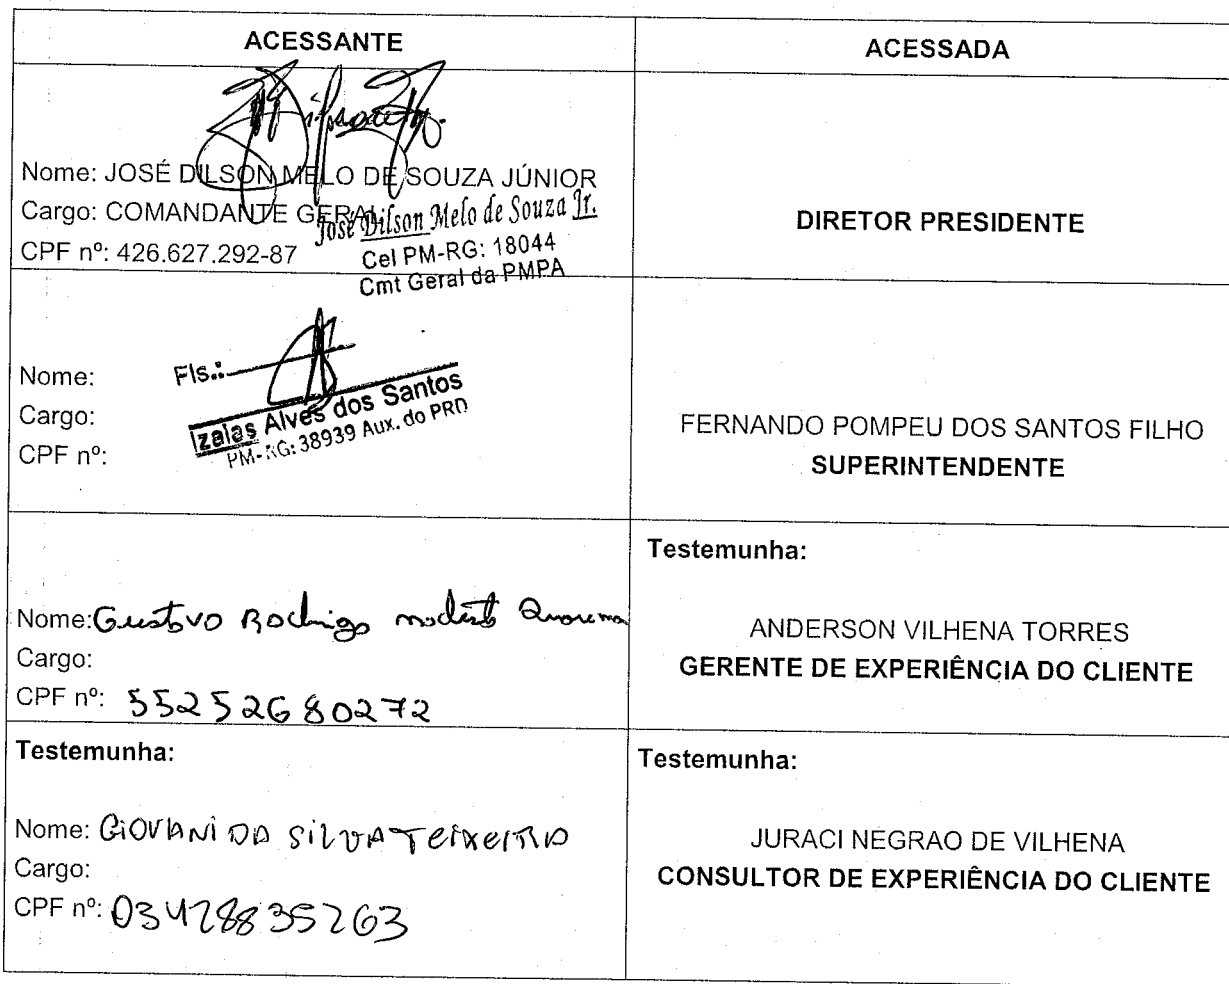 ACESSANTE
ACESSADA
Nome: JOSÉ DILSON MELO DE SOUZA JÚNIOR
Cargo: COMANDANTE GERAL
CPF nº: 426.627.292-87
José Dilson Melo de Souza Jr.
Cel PM-RG: 18044
Cmt Geral da PMPA
DIRETOR PRESIDENTE
Nome:
Cargo:
CPF nº:
Fls.:
Izaias Alves dos Santos
PM-RG: 38939 Aux. do PRD
FERNANDO POMPEU DOS SANTOS FILHO
SUPERINTENDENTE
Nome: Gustavo Rodrigo modesto
Cargo:
CPF nº: 55252680272
Testemunha:
ANDERSON VILHENA TORRES
GERENTE DE EXPERIÊNCIA DO CLIENTE
Testemunha:
Nome: GIOVANI DA SILVA TEIXEIRA
Cargo:
CPF nº: 03428835263
Testemunha:
JURACI NEGRAO DE VILHENA
CONSULTOR DE EXPERIÊNCIA DO CLIENTE